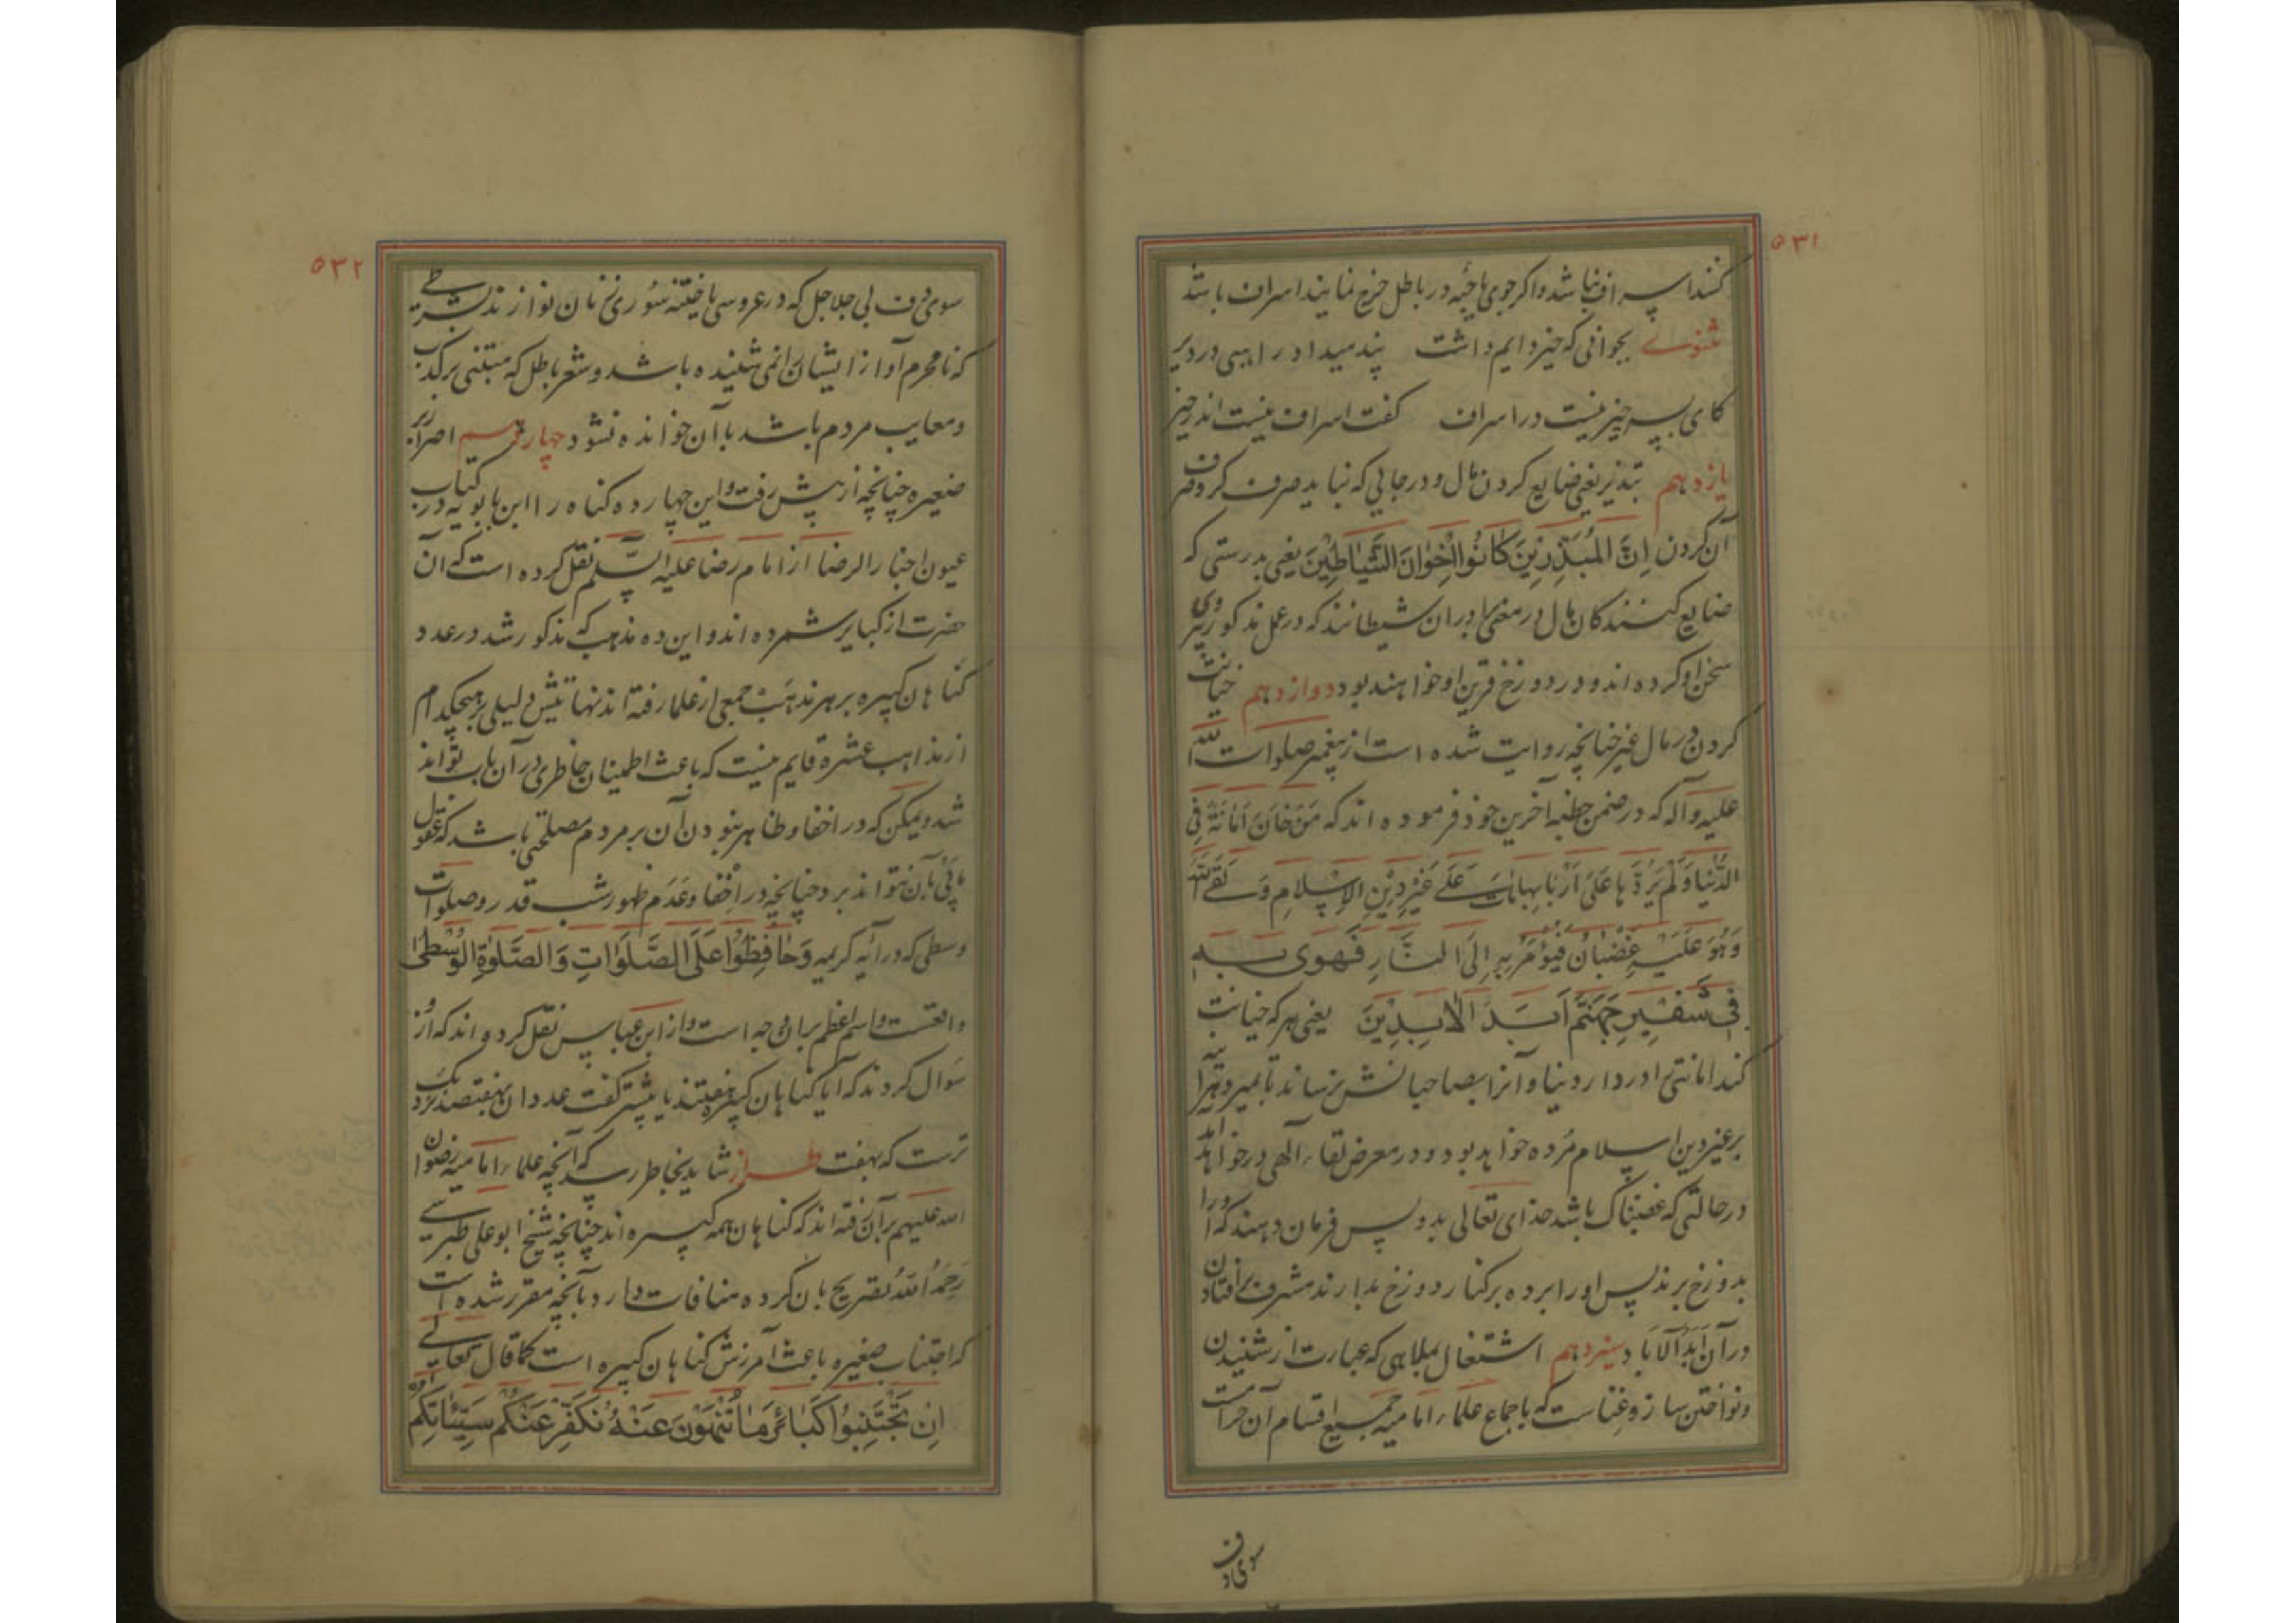 ۵۳۱
کنند اسراف نباشد و اگر جوی یا حبه در باطل خرج نمایند اسراف باشد
مثنوی بجوانی که خیر دایم داشت پند میداد راهبی در دیر
کای پسر خیر نیست در اسراف گفت اسراف نیست اندر خیر
یازدهم تبذیر یعنی ضایع کردن مال و در جایی که نباید صرف کرد صرف
آن کردن اِنَّ المُبَذِّرِینَ کَانُوا اِخْوَانَ الشَّیَاطِیْنَ یعنی بدرستی که
ضایع کنندگان مال در معنی برادران شیطانند که در عمل مذکور پیروی
سخن او کرده اند و در دوزخ قرین او خواهند بود دوازدهم خیانت
کردن در مال غیر چنانچه روایت شده است از پیغمبر صلوات الله
علیه و آله که در ضمن خطبه آخرین خود فرموده اند که مَنْ خَانَ اَمَانَةً فِی
الدُّنْیَا وَلَمْ یَرُدَّهَا عَلَی اَرْبَابِهَا مَاتَ عَلَی غَیْرِ دِیْنِ الاِسْلَامِ وَ لَقِیَ اللهَ
وَهُوَ عَلَیْهِ غَضْبَانُ فَیُؤْمَرُ بِهِ اِلَی النَّارِ فَهَوی بِهِ
فِی شَفِیْرِ جَهَنَّمَ اَبَدَ الاٰبِدِیْنَ یعنی هر که خیانت
کند امانتی را در دار دنیا و آنرا بصاحبانش نرساند تا بمیرد هر آینه
بر غیر دین اسلام مُرده خواهد بود و در معرض لقاء الهی در خواهد آمد
در حالتی که غضبناک باشد خدای تعالی بدو پس فرمان دهند که او را
بدوزخ برند پس او را برده بر کنار دوزخ بدارند مشرف بر افتادن
در آن اَبَدُ الآبَاد سیزدهم اشتغال بملاهی که عبارت از شنیدن
و نواختن ساز و غناست که باجماع علماء امامیه جمیع اقسام آن حرامست
سوی دف
۵۳۲
سوی دف بی جلاجل که در عروسی یا ختنه سوری زنان نوازند بشرطی
که نامحرم آواز ایشان را نمی شنیده باشد و شعر باطل که مبتنی بر کذب
و معایب مردم باشد با آن خوانده نشود چهاردهم اصرار بر
صغیره چنانچه از پیش رفت و این چهارده گناه را ابن بابویه در کتاب
عیون اخبار الرضا از امام رضا علیه السّلم نقل کرده است که آن
حضرت از کبایر شمرده اند و این ده مذهب که مذکور شد در عدد
گناهان کبیره بر هر مذهب جمعی از علما رفته اند نهایتش دلیلی بر هیچکدام
از مذاهب عشره قایم نیست که باعث اطمینان خاطری در آن باب تواند
شد و یمکن که در اخفا و ظاهر نبودن آن بر مردم مصلحتی باشد که عقول
ما پی بآن نتواند برد چنانچه در اخفا و عَدَم ظهور شب قدر و صلوات
وسطی که در آیه کریمه وَحَافِظُوا عَلَی الصَّلَوَاتِ وَ الصَّلٰوةِ الوُسْطٰی
واقعست و اسم اعظم بر آن وجه است و از ابن عباس نقل کرده اند که از او
سؤال کردند که آیا گناهان کبیره هفتند یا بیشتر گفت عدد آن بهفتصد نزدیک
ترست که بهفت طراز شاید بخاطر رسد که آنچه علماء امامیه رضوان
الله علیهم بر آن رفته اند که گناهان همه کبیره اند چنانچه شیخ ابو علی طبرسی
رَحِمَهُ اللهُ تصریح بآن کرده منافات دارد بآنچه مقرر شده است
که اجتناب صغیره باعث آمرزش گناهان کبیره است کما قال تعالی
اِنْ تَجْتَنِبُوا کَبَائِرَ مَا تُنْهَوْنَ عَنْهُ نُکَفِّرْ عَنْکُمْ سَیِّئَاتِکُمْ